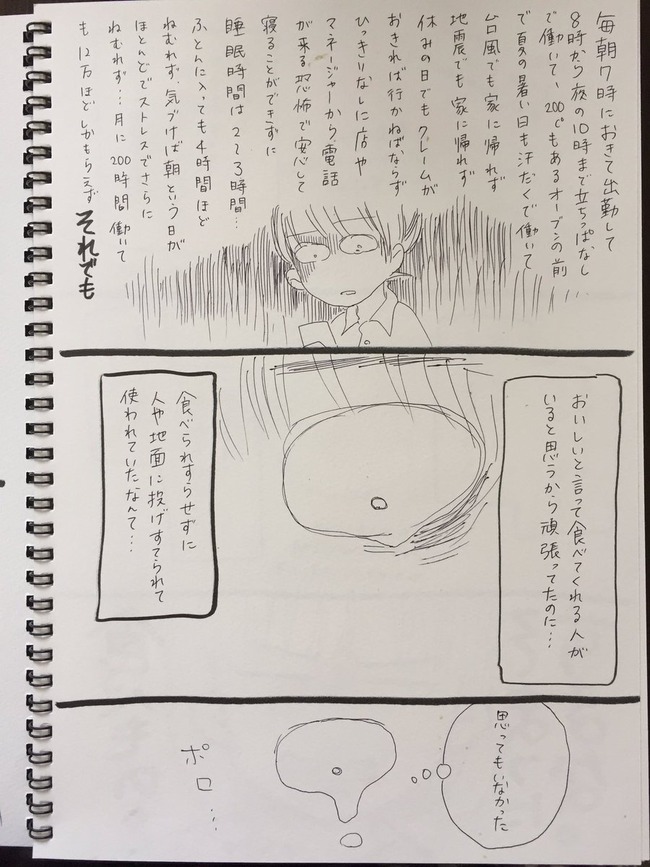 毎朝7時におきて出勤して
8時から夜の10時まで立ちっぱなし…
で働いて、200℃もあるオーブンの前
で夏の暑い日も汗だくで働いて
台風でも家に帰れず
地震でも家に帰れず
休みの日でもクレームが
おきれば行かねばならず
ひっきりなしに店や
マネージャーから電話
が来る恐怖で安心して
寝ることができずに
睡眠時間は2〜3時間…
ふとんに入っても4時間ほど
ねむれず、気づけば朝という日が
ほとんどでストレスでさらに
ねむれず…月に200時間働いて
も12万ほどしかもらえず
それでも
おいしいと言って食べてくれる人が
いると思うから頑張ってたのに…
食べられすらせずに
人や地面に投げすてられて
使われていたなんて…
思ってもいなかった
ポロ…